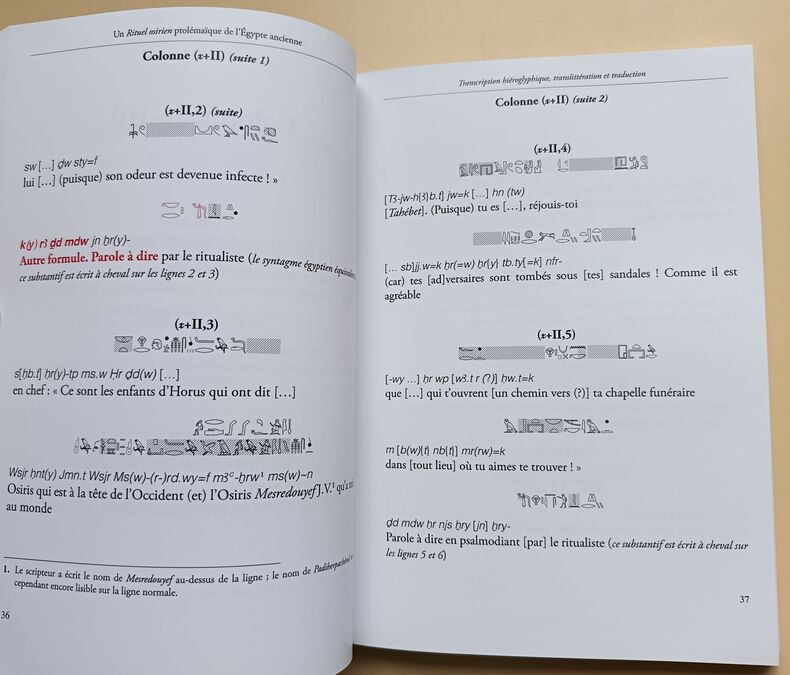 Un Rituel osirien ptolémaïque de l'Égypte ancienne
Colonne (x+II) (suite 1)
(x+II,2) (suite)
sw […] ḏw sty=f
lui […] (puisque) son odeur est devenue infecte ! »
k(y) rꜣ ḏd mdw jn ẖr(y)-
Autre formule. Parole à dire par le ritualiste (le syntagme égyptien
ce substantif est écrit à cheval sur les lignes 2 et 3)
(x+II,3)
s[ḥb.t] ḥr(y)-tp ms.w Ḥr ḏd(w) […]
en chef : « Ce sont les enfants d'Horus qui ont dit […]
Wsjr ḫnt(y) Jmn.t Wsjr Ms(w)-(r-)rd.wy=f mꜣꜥ-ḫrw¹ ms(w)~n
Osiris qui est à la tête de l'Occident (et) l'Osiris Mesredouyef J.V.¹ qu'a
au monde
1. Le scripteur a écrit le nom de Mesredouyef au-dessus de la ligne ; le nom de
cependant encore lisible sur la ligne normale.
36
Transcription hiéroglyphique, translittération et traduction
Colonne (x+II) (suite 2)
(x+II,4)
[Tꜣ-jw-h(ꜣ)b.t] jw=k […] hn (tw)
[Tahébet]. (Puisque) tu es […], réjouis-toi
[… sb]jj.w=k ḫr(=w) ẖr[y] tb.ty[=k] nfr-
(car) tes [ad]versaires sont tombés sous [tes] sandales ! Comme il est
agréable
(x+II,5)
[-wy …] ḥr wp [wꜣ.t r (?)] ḥw.t=k
que […] qui t'ouvrent [un chemin vers (?)] ta chapelle funéraire
m [b(w)[t) nb(t)] mr(rw)=k
dans [tout lieu] où tu aimes te trouver ! »
ḏd mdw ḥr njs ẖry [jn] ẖry-
Parole à dire en psalmodiant [par] le ritualiste (ce substantif est écrit à cheval sur
les lignes 5 et 6)
37